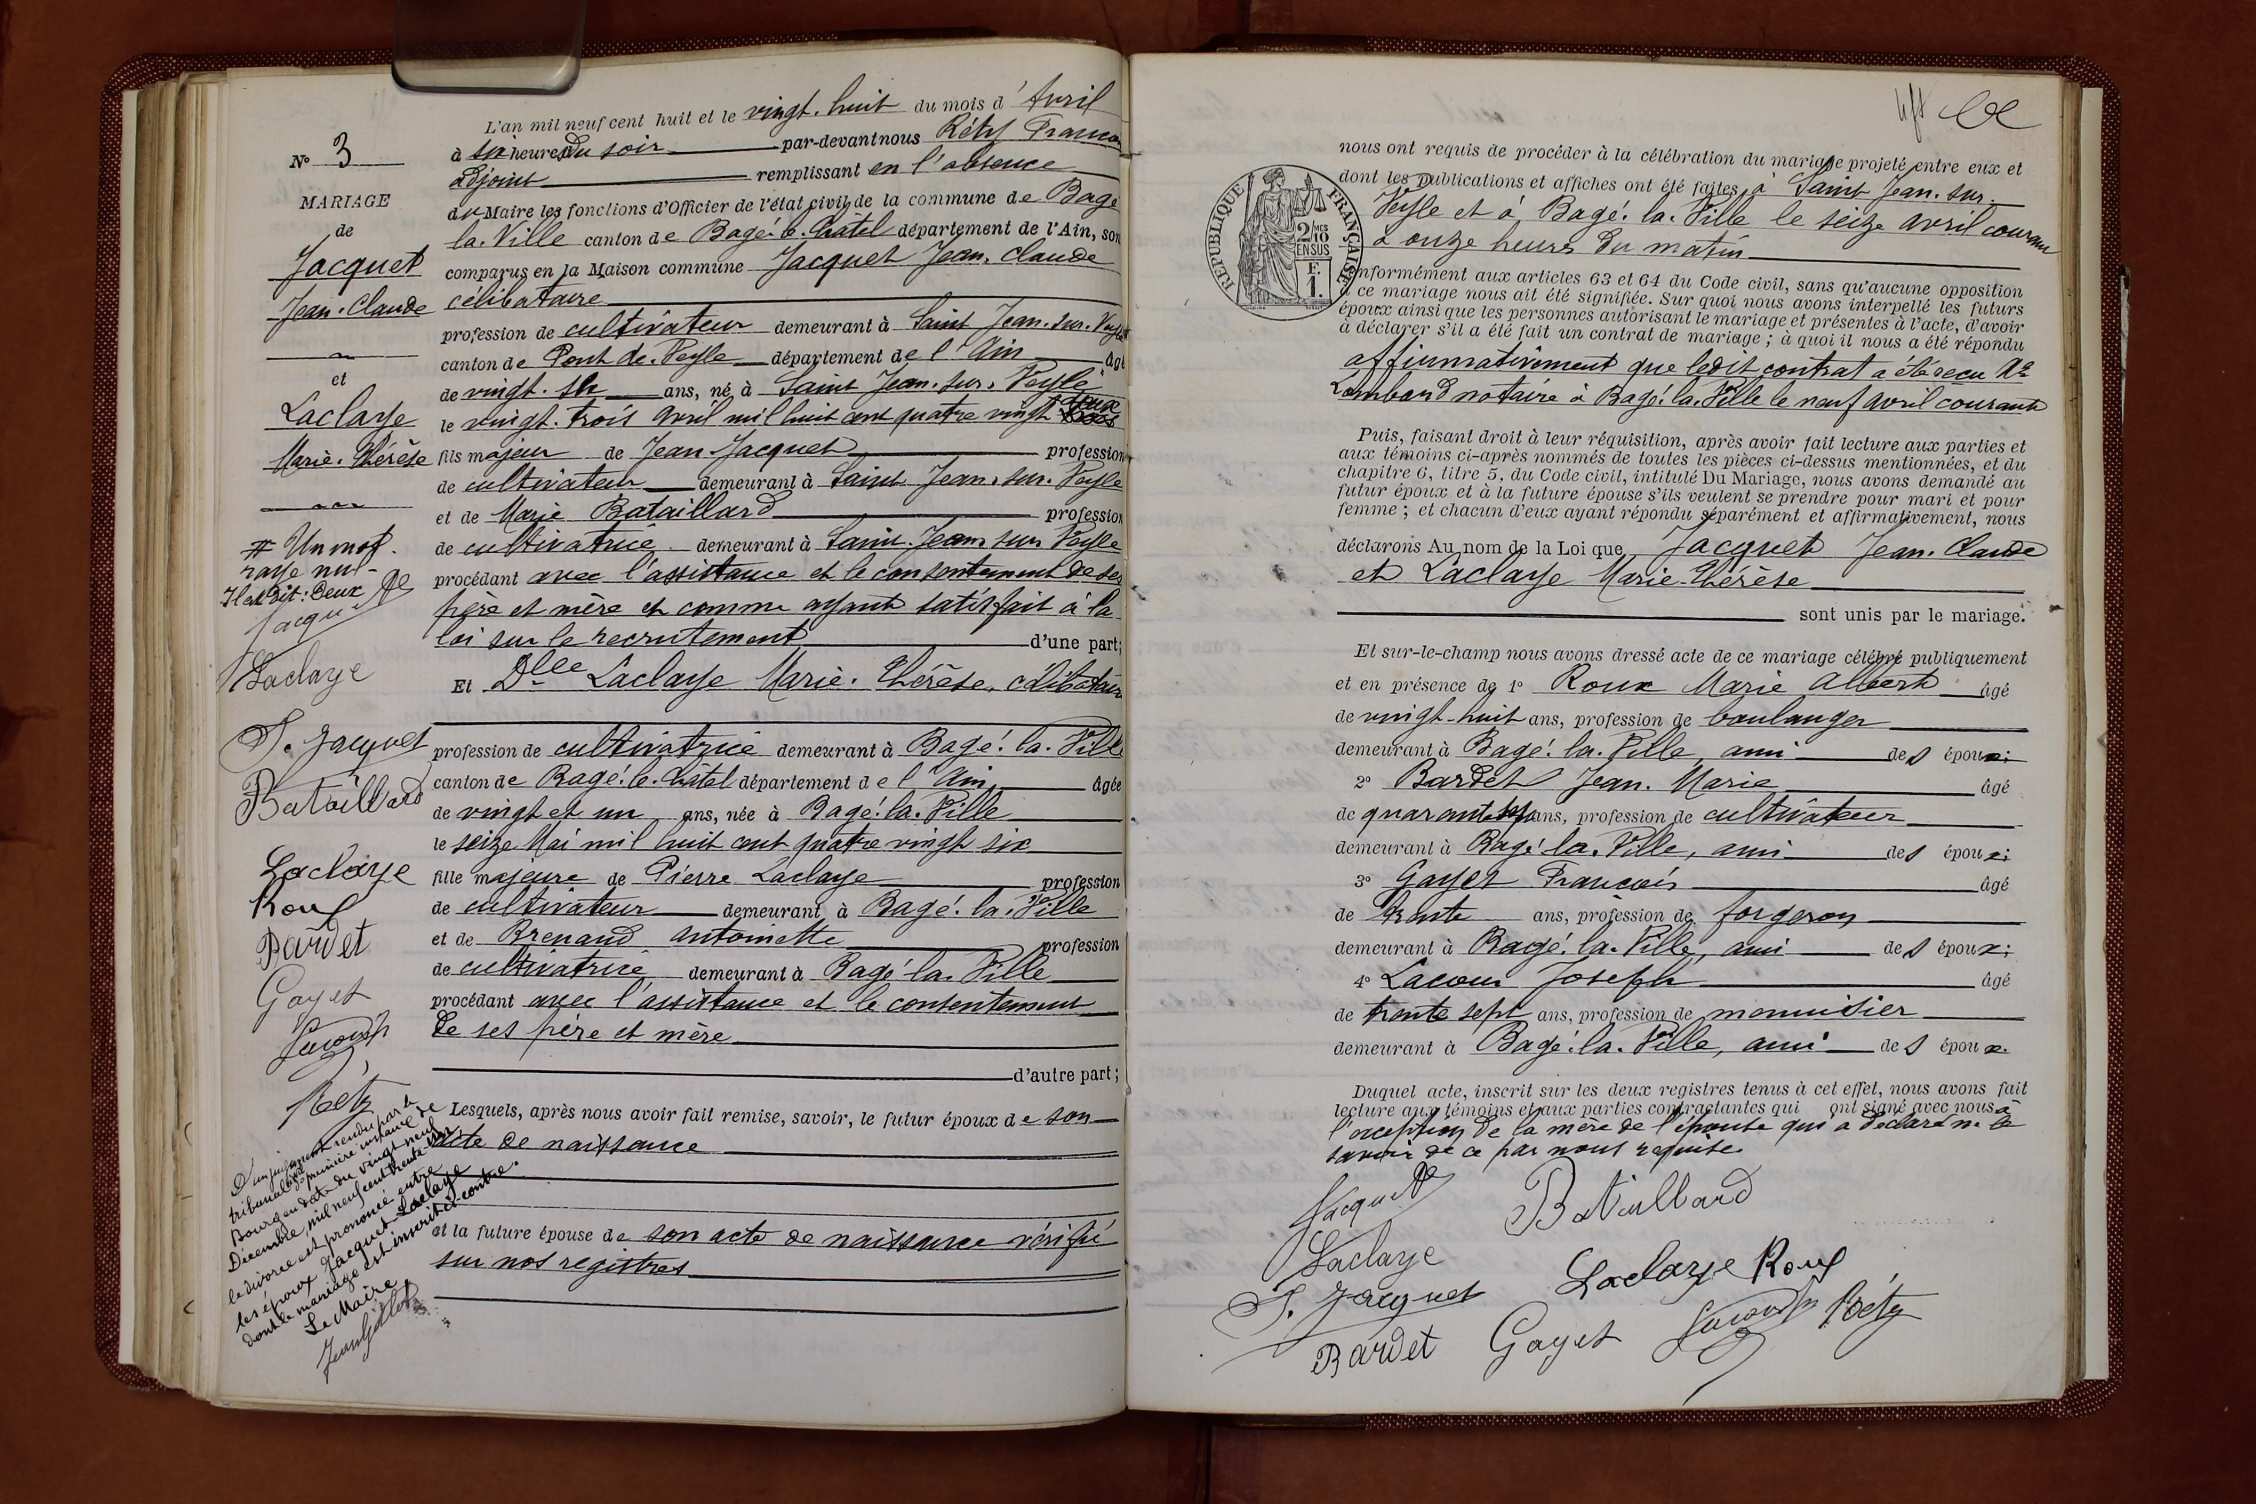 L'an mil neuf cent huit et le vingt-huit du mois d'Avril
à six heures du soir par-devant nous Réty
adjoint remplissant en l'absence
du Maire les fonctions d'Officier de l'état civil de la commune de Bagé
la-Ville canton de Bagé-le-Châtel département de l'Ain, son
comparus en la Maison commune Jacquet Jean-Claude
célibataire
profession de cultivateur demeurant à Saint Jean-sur-Veyle
canton de Pont-de-Veyle département de l'Ain âgé
de vingt-six ans, né à Saint Jean-sur-Veyle
le vingt-trois avril mil huit cent quatre vingt deux
fils majeur de Jean Jacquet profession
de cultivateur demeurant à Saint Jean-sur-Veyle
et de Marie Bataillard profession
de cultivatrice demeurant à Saint-Jean sur Veyle
procédant avec l'assistance et le consentement de ses
père et mère et comme ayant satisfait à la
loi sur le recrutement d'une part;
Et Dlle Laclaye Marie-Thérèse, célibataire
profession de cultivatrice demeurant à Bagé-la-Ville
canton de Bagé-le-Châtel département de l'Ain âgée
de vingt et un ans, née à Bagé-la-Ville
le seize Mai mil huit cent quatre vingt six
fille majeure de Pierre Laclaye profession
de cultivateur demeurant à Bagé-la-Ville
et de Brenaud Antoinette profession
de cultivatrice demeurant à Bagé-la-Ville
procédant avec l'assistance et le consentement
de ses père et mère
d'autre part;
Lesquels, après nous avoir fait remise, savoir, le futur époux de son
acte de naissance
et la future épouse de son acte de naissance vérifié
sur nos registres
No 3
MARIAGE
de
Jacquet
Jean-Claude
et
Laclaye
Marie-Thérèse
# Un mot
rayé nul
Il est dit: Deux
Jacquet
Laclaye
J. Jacquet
Bataillard
Laclaye
Roux
Bardet
Gayet
Réty
D'un jugement rendu par le
tribunal de première instance de
Bourg en date du vingt neuf
Décembre mil neuf cent trente
le divorce est prononcé entre
les époux Jacquet-Laclaye
dont le mariage est inscrit ci-contre.
Le Maire,
nous ont requis de procéder à la célébration du mariage projeté entre eux et
dont les publications et affiches ont été faites à Saint Jean-sur-
Veyle et à Bagé-la-Ville le seize avril courant
à onze heures du matin
RÉPUBLIQUE FRANÇAISE
2/10
MES
EN SUS
F.
1.
nformément aux articles 63 et 64 du Code civil, sans qu'aucune opposition
ce mariage nous ait été signifiée. Sur quoi nous avons interpellé les futurs
époux ainsi que les personnes autorisant le mariage et présentes à l'acte, d'avoir
à déclarer s'il a été fait un contrat de mariage; à quoi il nous a été répondu
affirmativement que ledit contrat a été reçu Me
Lombard notaire à Bagé-la-Ville le neuf avril courant
Puis, faisant droit à leur réquisition, après avoir fait lecture aux parties et
aux témoins ci-après nommés de toutes les pièces ci-dessus mentionnées, et du
chapitre 6, titre 5, du Code civil, intitulé Du Mariage, nous avons demandé au
futur époux et à la future épouse s'ils veulent se prendre pour mari et pour
femme; et chacun d'eux ayant répondu séparément et affirmativement, nous
déclarons Au nom de la Loi que Jacquet Jean-Claude
et Laclaye Marie-Thérèse
sont unis par le mariage.
Et sur-le-champ nous avons dressé acte de ce mariage célébré publiquement
et en présence de 1o Roux Marie Albert âgé
de vingt-huit ans, profession de boulanger
demeurant à Bagé-la-Ville, ami des époux;
2o Bardet Jean-Marie âgé
de quarante sept ans, profession de cultivateur
demeurant à Bagé-la-Ville, ami des époux;
3o Gayet François âgé
de trente ans, profession de forgeron
demeurant à Bagé-la-Ville, ami des époux;
4o Lacour Joseph âgé
de trente sept ans, profession de menuisier
demeurant à Bagé-la-Ville, ami des époux.
Duquel acte, inscrit sur les deux registres tenus à cet effet, nous avons fait
lecture aux témoins et aux parties contractantes qui ont signé avec nous à
l'exception de la mère de l'épouse qui a déclaré ne le
savoir de ce par nous requise.
Jacquet
Bataillard
Laclaye
Laclaye Roux
J. Jacquet
Bardet Gayet Réty